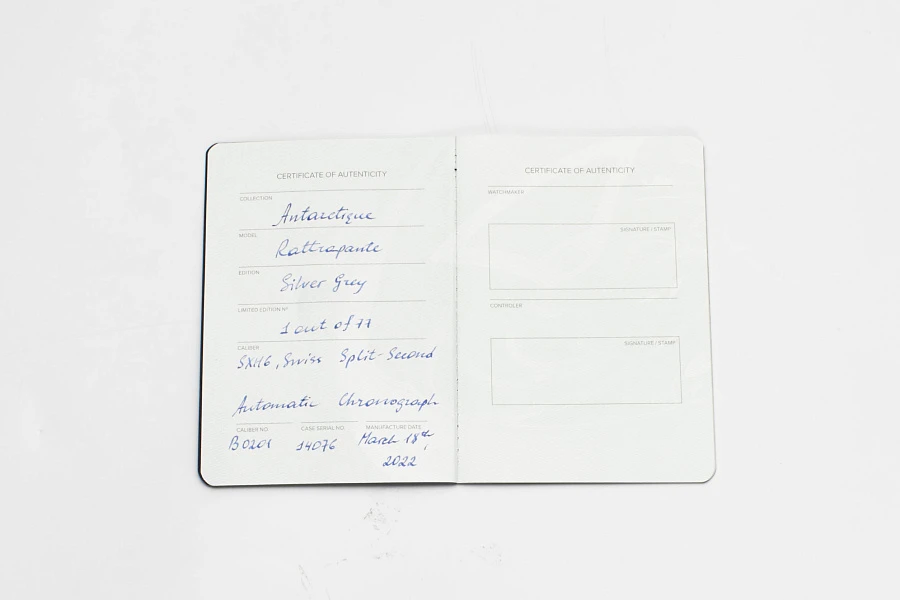 CERTIFICATE OF AUTENTICITY
COLLECTION
Antarctique
MODEL
Rattrapante
EDITION
Silver Grey
LIMITED EDITION Nº
1 out of 77
CALIBER
SXH6, Swiss Split-Second
Automatic Chronograph
CALIBER NO. CASE SERIAL NO. MANUFACTURE DATE
B0201 14076 March 18th,
2022
CERTIFICATE OF AUTENTICITY
WATCHMAKER
SIGNATURE / STAMP
CONTROLER
SIGNATURE / STAMP